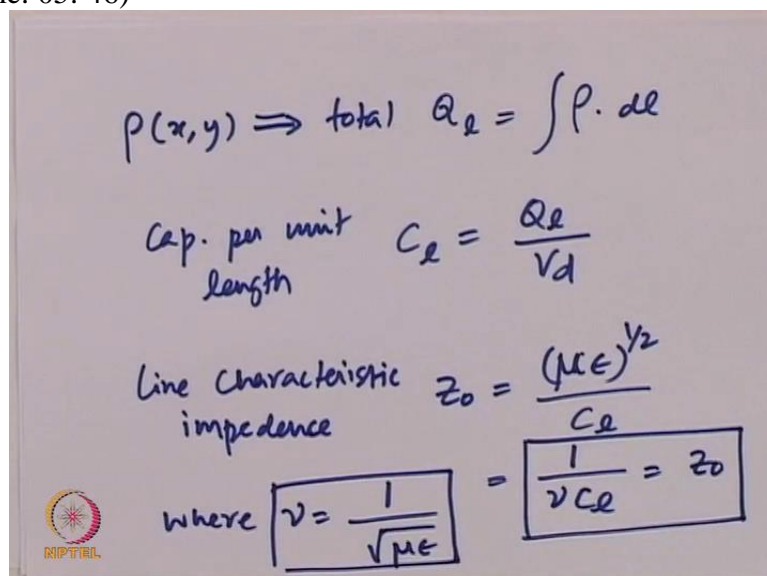 ρ(x,y) ⇒ total Q_l = ∫ρ. dl
Cap. per unit length C_l = Q_l / Vd
Line Characteristic impedence Z_0 = (με)^{1/2} / C_l
where ν = 1/√με = 1/νC_l = Z_0
NPTEL